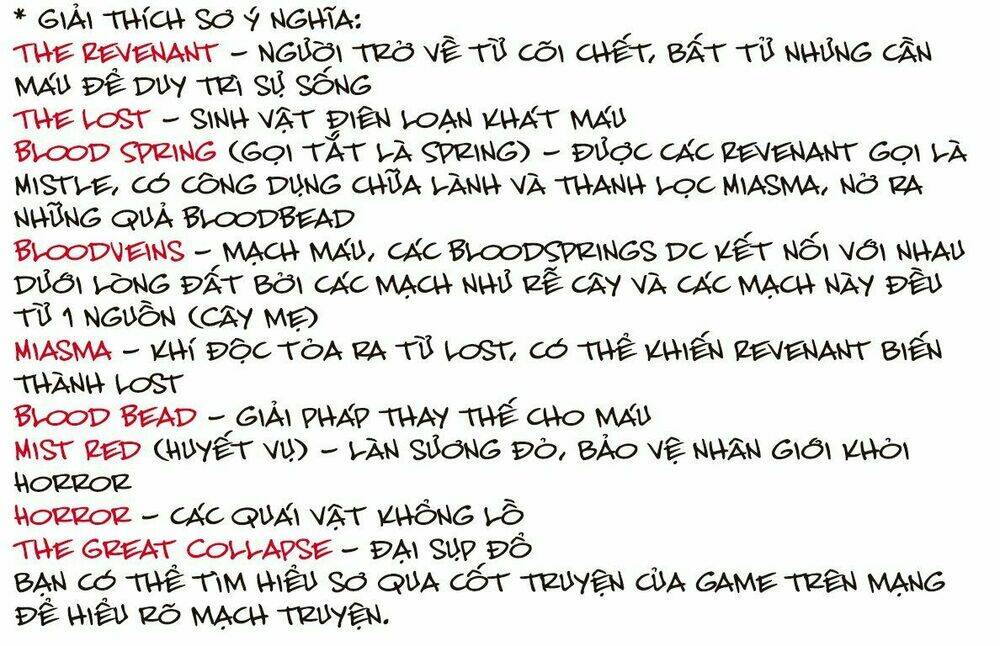 * GIẢI THÍCH SƠ Ý NGHĨA:
THE REVENANT – NGƯỜI TRỞ VỀ TỪ CÕI CHẾT, BẤT TỬ NHƯNG CẦN
MÁU ĐỂ DUY TRÌ SỰ SỐNG
THE LOST – SINH VẬT ĐIÊN LOẠN KHÁT MÁU
BLOOD SPRING (GỌI TẮT LÀ SPRING) – ĐƯỢC CÁC REVENANT GỌI LÀ
MISTLE, CÓ CÔNG DỤNG CHỮA LÀNH VÀ THANH LỌC MIASMA, NỞ RA
NHỮNG QUẢ BLOODBEAD
BLOODVEINS – MẠCH MÁU, CÁC BLOODSPRINGS DC KẾT NỐI VỚI NHAU
DƯỚI LÒNG ĐẤT BỞI CÁC MẠCH NHƯ RỄ CÂY VÀ CÁC MẠCH NÀY ĐỀU
TỪ 1 NGUỒN (CÂY MẸ)
MIASMA – KHÍ ĐỘC TỎA RA TỪ LOST, CÓ THỂ KHIẾN REVENANT BIẾN
THÀNH LOST
BLOOD BEAD – GIẢI PHÁP THAY THẾ CHO MÁU
MIST RED (HUYẾT VỤ) – LÀN SƯƠNG ĐỎ, BẢO VỆ NHÂN GIỚI KHỎI
HORROR
HORROR – CÁC QUÁI VẬT KHỔNG LỒ
THE GREAT COLLAPSE – ĐẠI SỤP ĐỔ
BẠN CÓ THỂ TÌM HIỂU SƠ QUA CỐT TRUYỆN CỦA GAME TRÊN MẠNG
ĐỂ HIỂU RÕ MẠCH TRUYỆN.